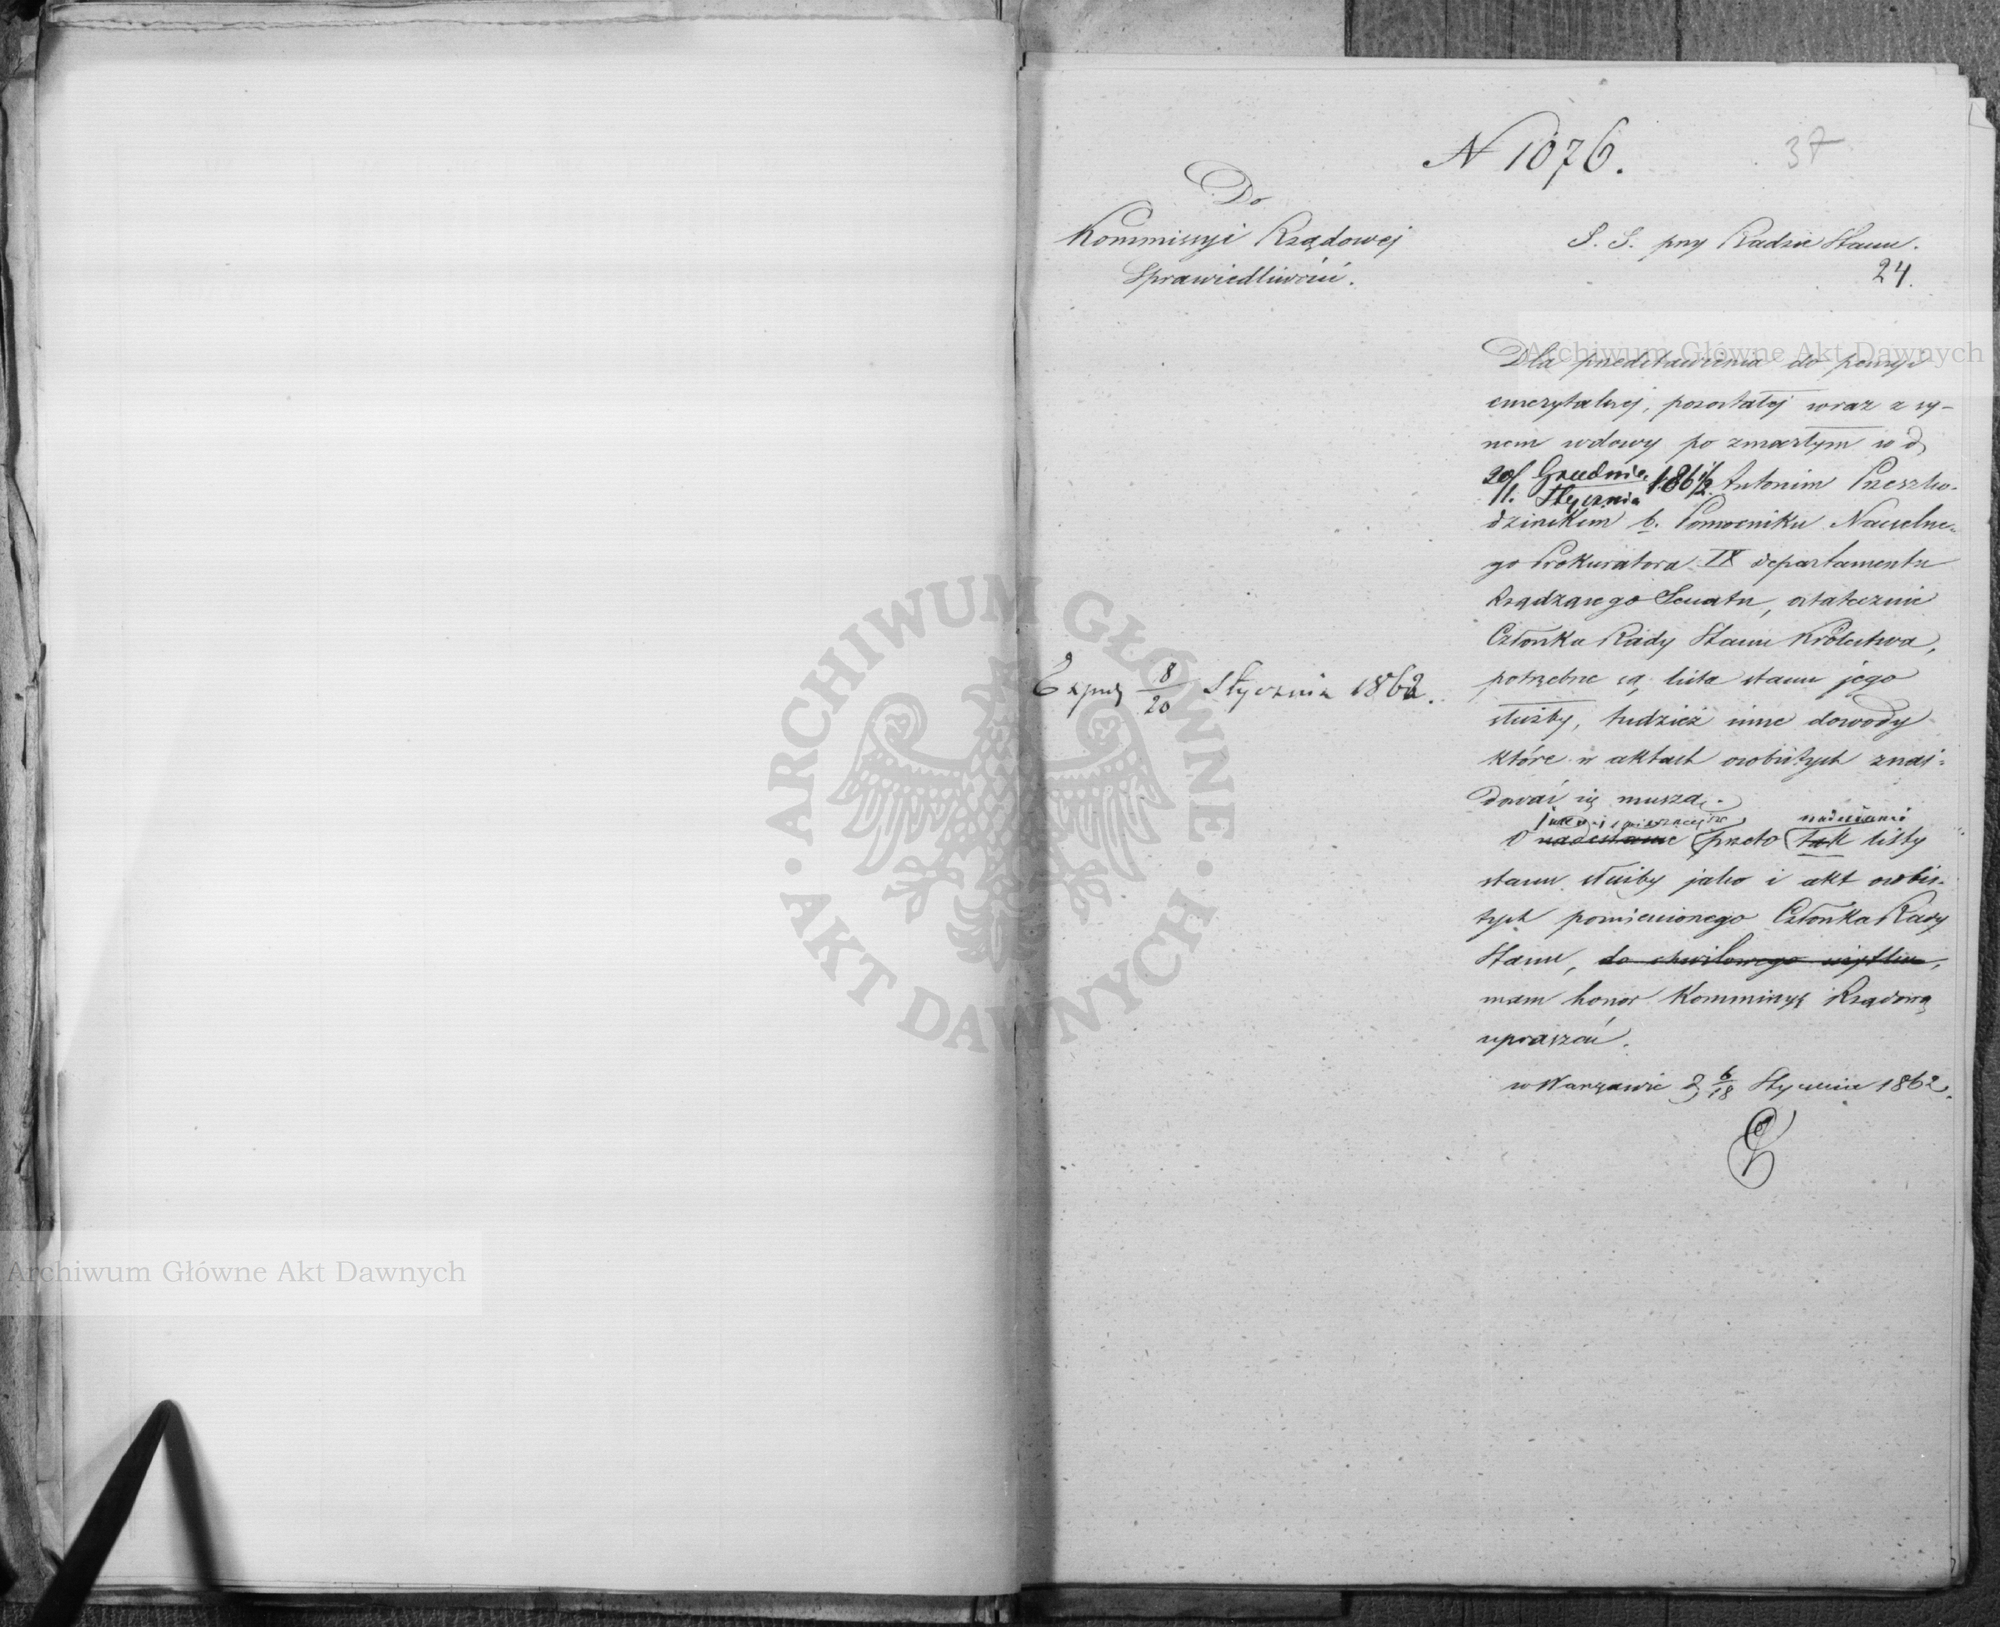 N 1076.
37
Do
Kommissyi Rządowej
Sprawiedliwości.
S. S. przy Radzie Stanu.
24.
Dla przedstawienia do pensyi
emerytalnej, pozostałej wraz z sy-
nem wdowy po zmarłym w d,
20/ Grudnia
11. Stycznia 1861/2. Antonim Przeszko-
dzińskim b. Pomocniku Naczelne-
go Prokuratora IX departamentu
Rządzącego Senatu, ostatecznie
Członku Rady Stanu Królestwa,
potrzebne są lista stanu jego
służby, tudzież inne dowody
które w aktach osobistych znaj-
dować się muszą.
nadesłanie
O nadesłanie przeto tak listy
stanu służby jako i akt osobis-
tych pomienionego Członka Rady
Stanu, do chwilowego użytku,
mam honor Kommissyę Rządową
upraszać.
w Warszawie d, 6/18 Stycznia 1862.
Exped 8/20 Stycznia 1862.
ARCHIWUM GŁÓWNE AKT DAWNYCH
Archiwum Główne Akt Dawnych
Archiwum Główne Akt Dawnych